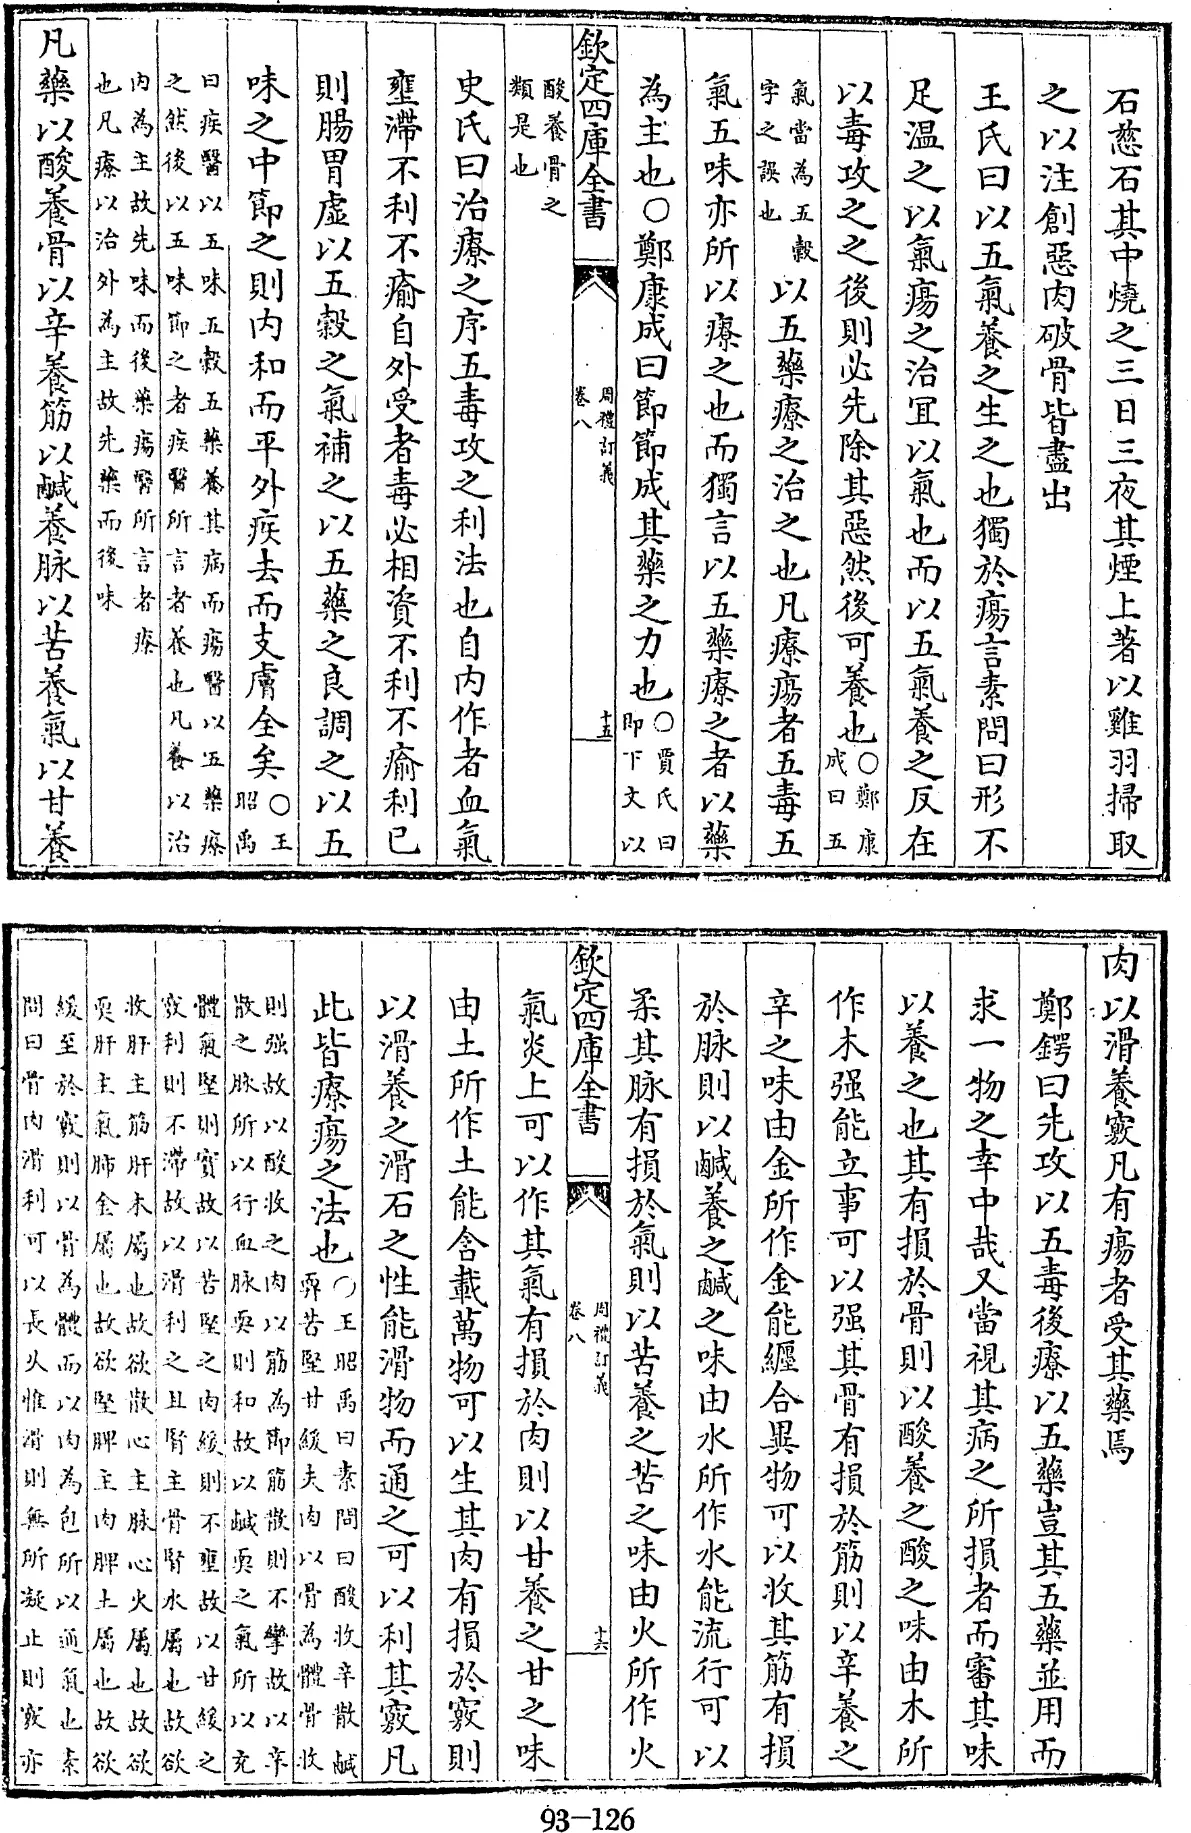 石慈石其中燒之三日三夜其煙上著以雞羽掃取
之以注創惡肉破骨皆盡出
王氏曰以五氣養之生之也獨於瘍言素問曰形不
足溫之以氣瘍之治宜以氣也而以五氣養之反在
以毒攻之之後則必先除其惡然後可養也○鄭康
成曰五
氣當為五穀
字之誤也
以五藥療之治之也凡療瘍者五毒五
氣五味亦所以療之也而獨言以五藥療之者以藥
為主也○鄭康成曰節節成其藥之力也○賈氏曰
即下文以
欽定四庫全書
周禮訂義
卷八
十五
酸養骨之
類是也
史氏曰治療之序五毒攻之利法也自内作者血氣
壅滯不利不瘉自外受者毒必相資不利不瘉利已
則腸胃虛以五穀之氣補之以五藥之良調之以五
味之中節之則内和而平外疾去而支膚全矣○王
昭禹
曰疾醫以五味五穀五藥養其病而瘍醫以五藥療
之然後以五味節之者疾醫所言者養也凡養以治
内為主故先味而後藥瘍醫所言者療
也凡療以治外為主故先藥而後味
凡藥以酸養骨以辛養筋以鹹養脉以苦養氣以甘養
肉以滑養竅凡有瘍者受其藥焉
鄭鍔曰先攻以五毒後療以五藥豈其五藥並用而
求一物之幸中哉又當視其病之所損者而審其味
以養之也其有損於骨則以酸養之酸之味由木所
作木强能立事可以强其骨有損於筋則以辛養之
辛之味由金所作金能纏合異物可以收其筋有損
於脉則以鹹養之鹹之味由水所作水能流行可以
柔其脉有損於氣則以苦養之苦之味由火所作火
欽定四庫全書
周禮訂義
卷八
十六
氣炎上可以作其氣有損於肉則以甘養之甘之味
由土所作土能含載萬物可以生其肉有損於竅則
以滑養之滑石之性能滑物而通之可以利其竅凡
此皆療瘍之法也○王昭禹曰素問曰酸收辛散鹹
耎苦堅甘緩夫肉以骨為體骨收
則强故以酸收之肉以筋為節筋散則不攣故以辛
散之脉所以行血脉耎則和故以鹹耎之氣所以充
體氣堅則實故以苦堅之肉緩則不壅故以甘緩之
竅利則不滯故以滑利之且腎主骨腎水屬也故欲
收肝主筋肝木屬也故欲散心主脉心火屬也故欲
耎肝主氣肺金屬也故欲堅脾主肉脾土屬也故欲
緩至於竅則以骨為體而以肉為包所以通氣也素
問曰骨肉滑利可以長久惟滑則無所凝止則竅亦
93-126